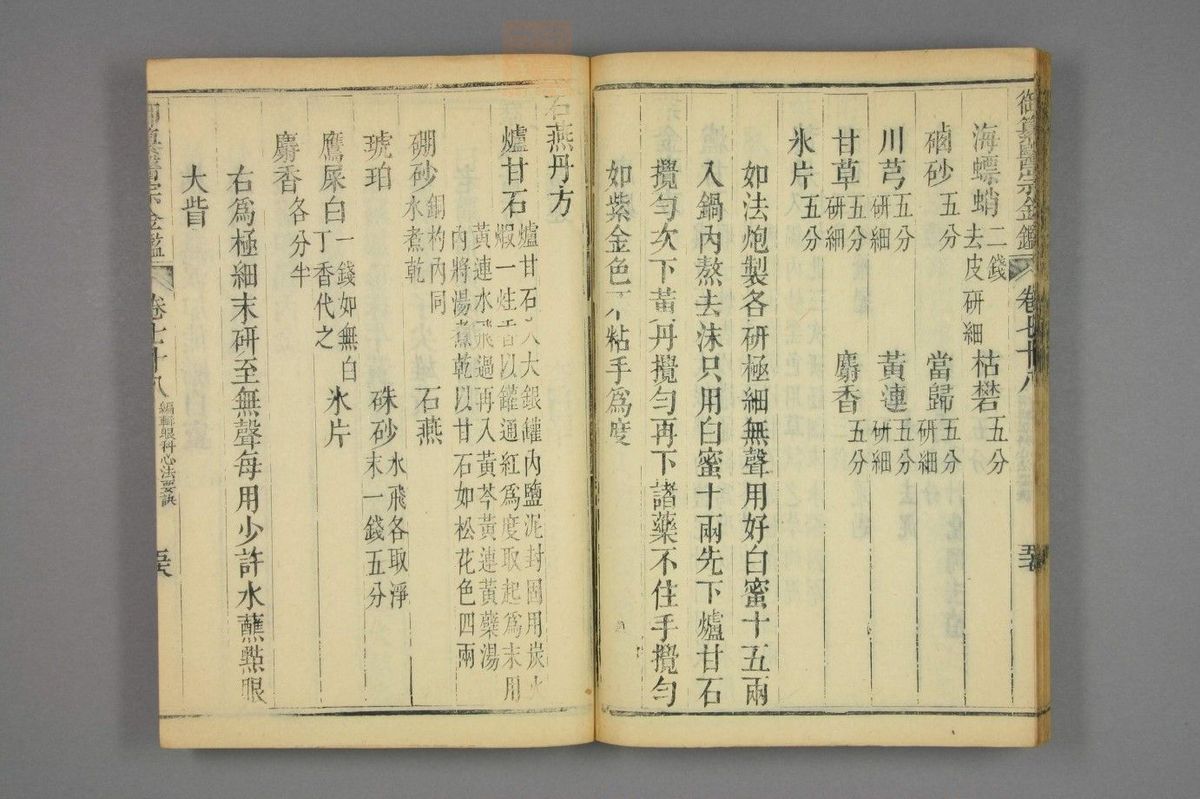 御纂醫宗金鑑 卷七十八
海螵蛸二錢去皮研細 枯礬五分
磠砂五分 當歸五分研細
川芎五分研細 黃連五分研細
甘草五分研細 麝香五分
氷片五分
如法炮製各研極細無聲用好白蜜十五兩
入鍋內熬去沫只用白蜜十兩先下爐甘石
攪勻次下黃丹攪勻再下諸藥不住手攪勻
如紫金色不粘手為度
石燕丹方
爐甘石爐甘石入大銀罐內鹽泥封固用炭火
煅一炷香以罐通紅為度取起為末用
黃連水飛過再入黃芩黃連黃蘗湯
內將湯煮乾以甘石如松花色四兩
硼砂銅杓內同水煮乾 石燕
琥珀 硃砂水飛各取淨末一錢五分
鷹屎白一錢如無白丁香代之 氷片
麝香各分半
右為極細末研至無聲每用少許水蘸點眼
大眥
御纂醫宗金鑑 卷七十八 編輯眼科心法要訣